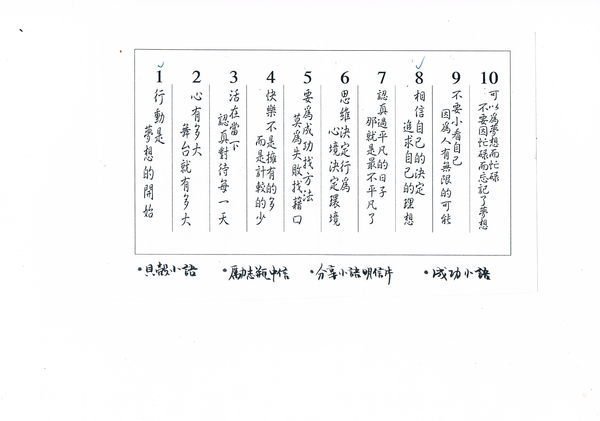 1
行動是
夢想的開始
2
心有多大
舞台就有多大
3
活在當下
認真對待每一天
4
快樂不是擁有的多
而是計較的少
5
要為成功找方法
莫為失敗找藉口
6
思維決定行為
心境決定環境
7
認真過平凡的日子
那就是最不平凡了
8
相信自己的決定
追求自己的理想
9
不要小看自己
因為人有無限的可能
10
可以為夢想而忙碌
不要因忙碌而忘記了夢想
•貝殼小語
•勵志瓶中信
•分享小語明信片
•成功小語